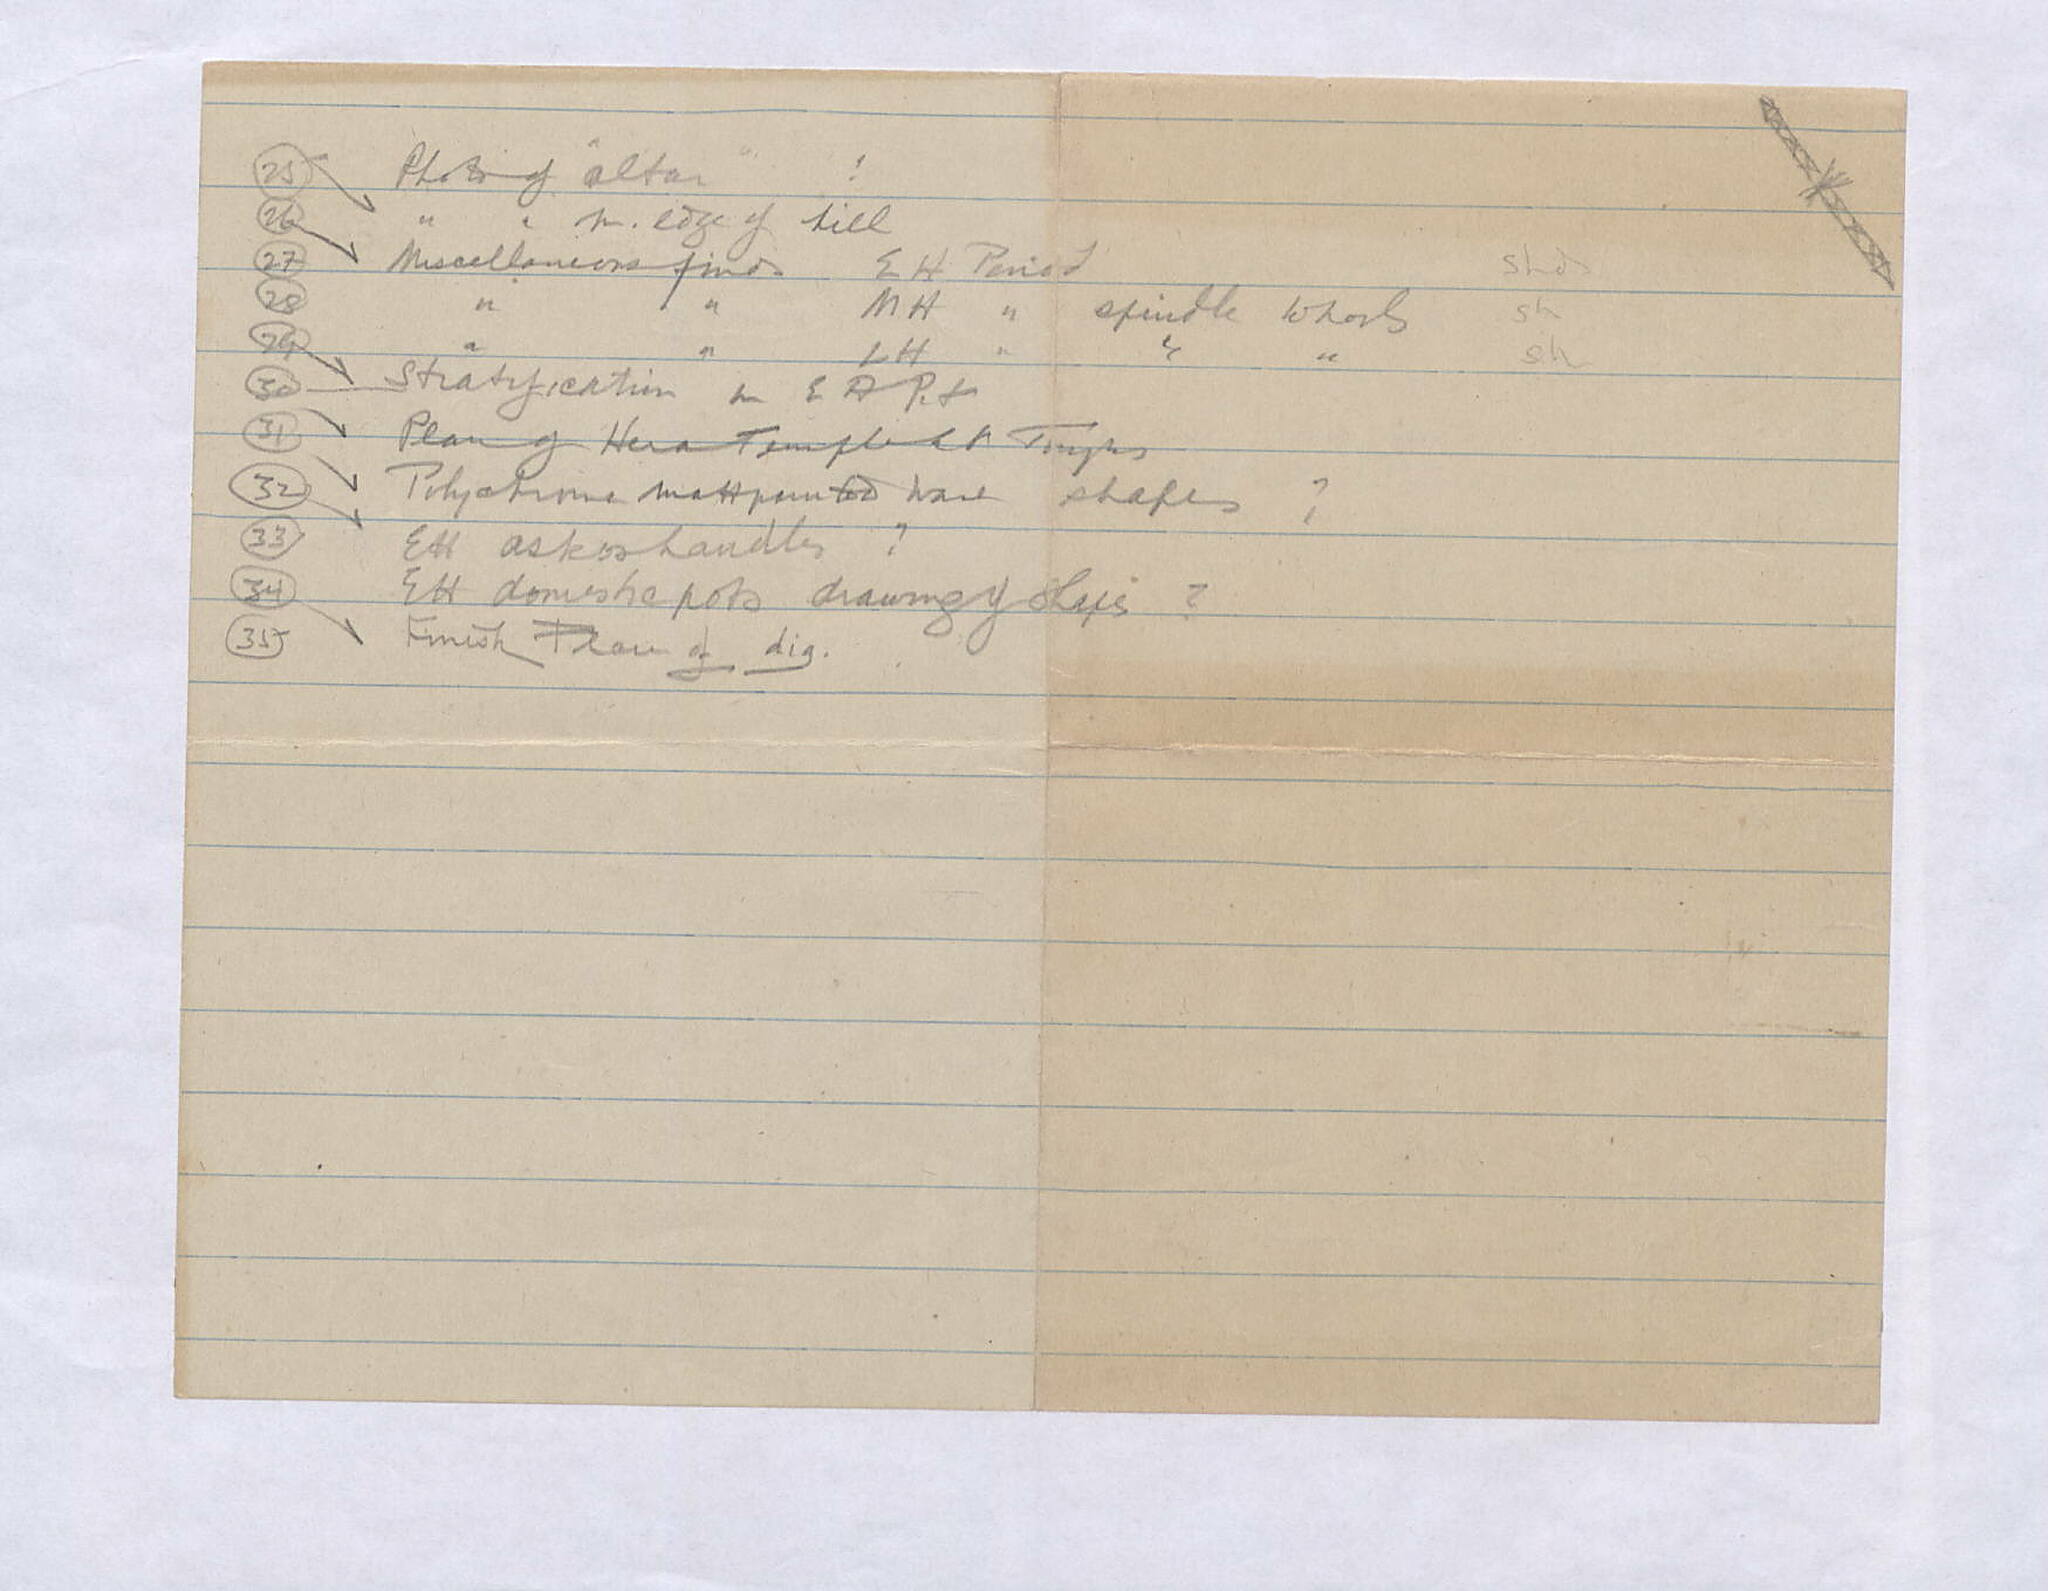 25 Photo of "altar" !
26 " " on. edge of hill
27 Miscellaneous finds EH Period shds
28 " " MH " spindle whorls sh
29 " " LH " " " sh
30 Stratification in EH Pit
31 Plan of Hera Temple at Tiryns
32 Polychrome mattpainted ware shapes ?
33 EH askos handles ?
34 EH domestic pots drawing of shapes ?
35 Finish Plan of dig.